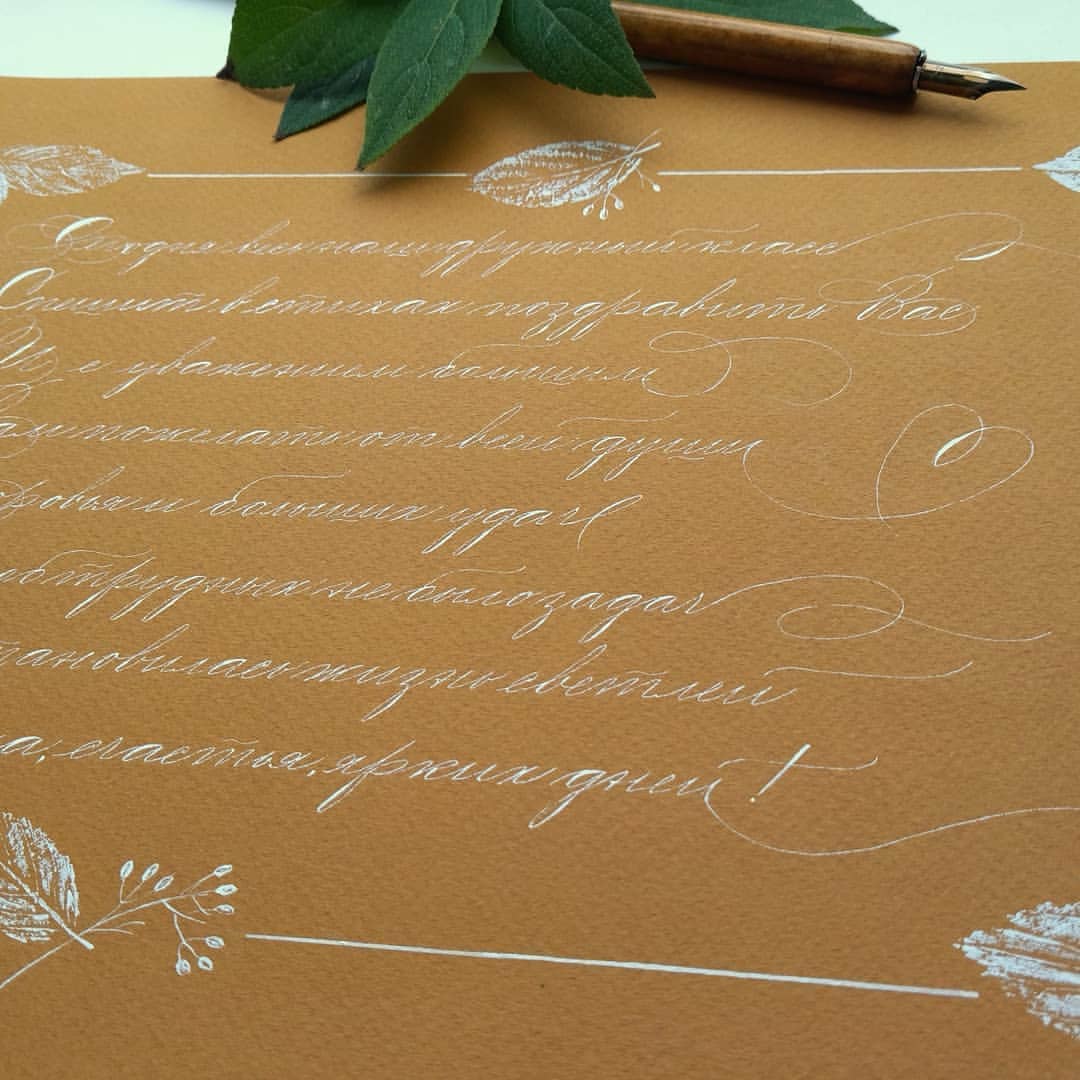 Сегодня весь наш дружный класс
Спешит в стихах поздравить Вас
И с уважением большим
пожелать от всей души
больших удач
трудных не было задач
жизнь светлей
счастья, ярких дней!